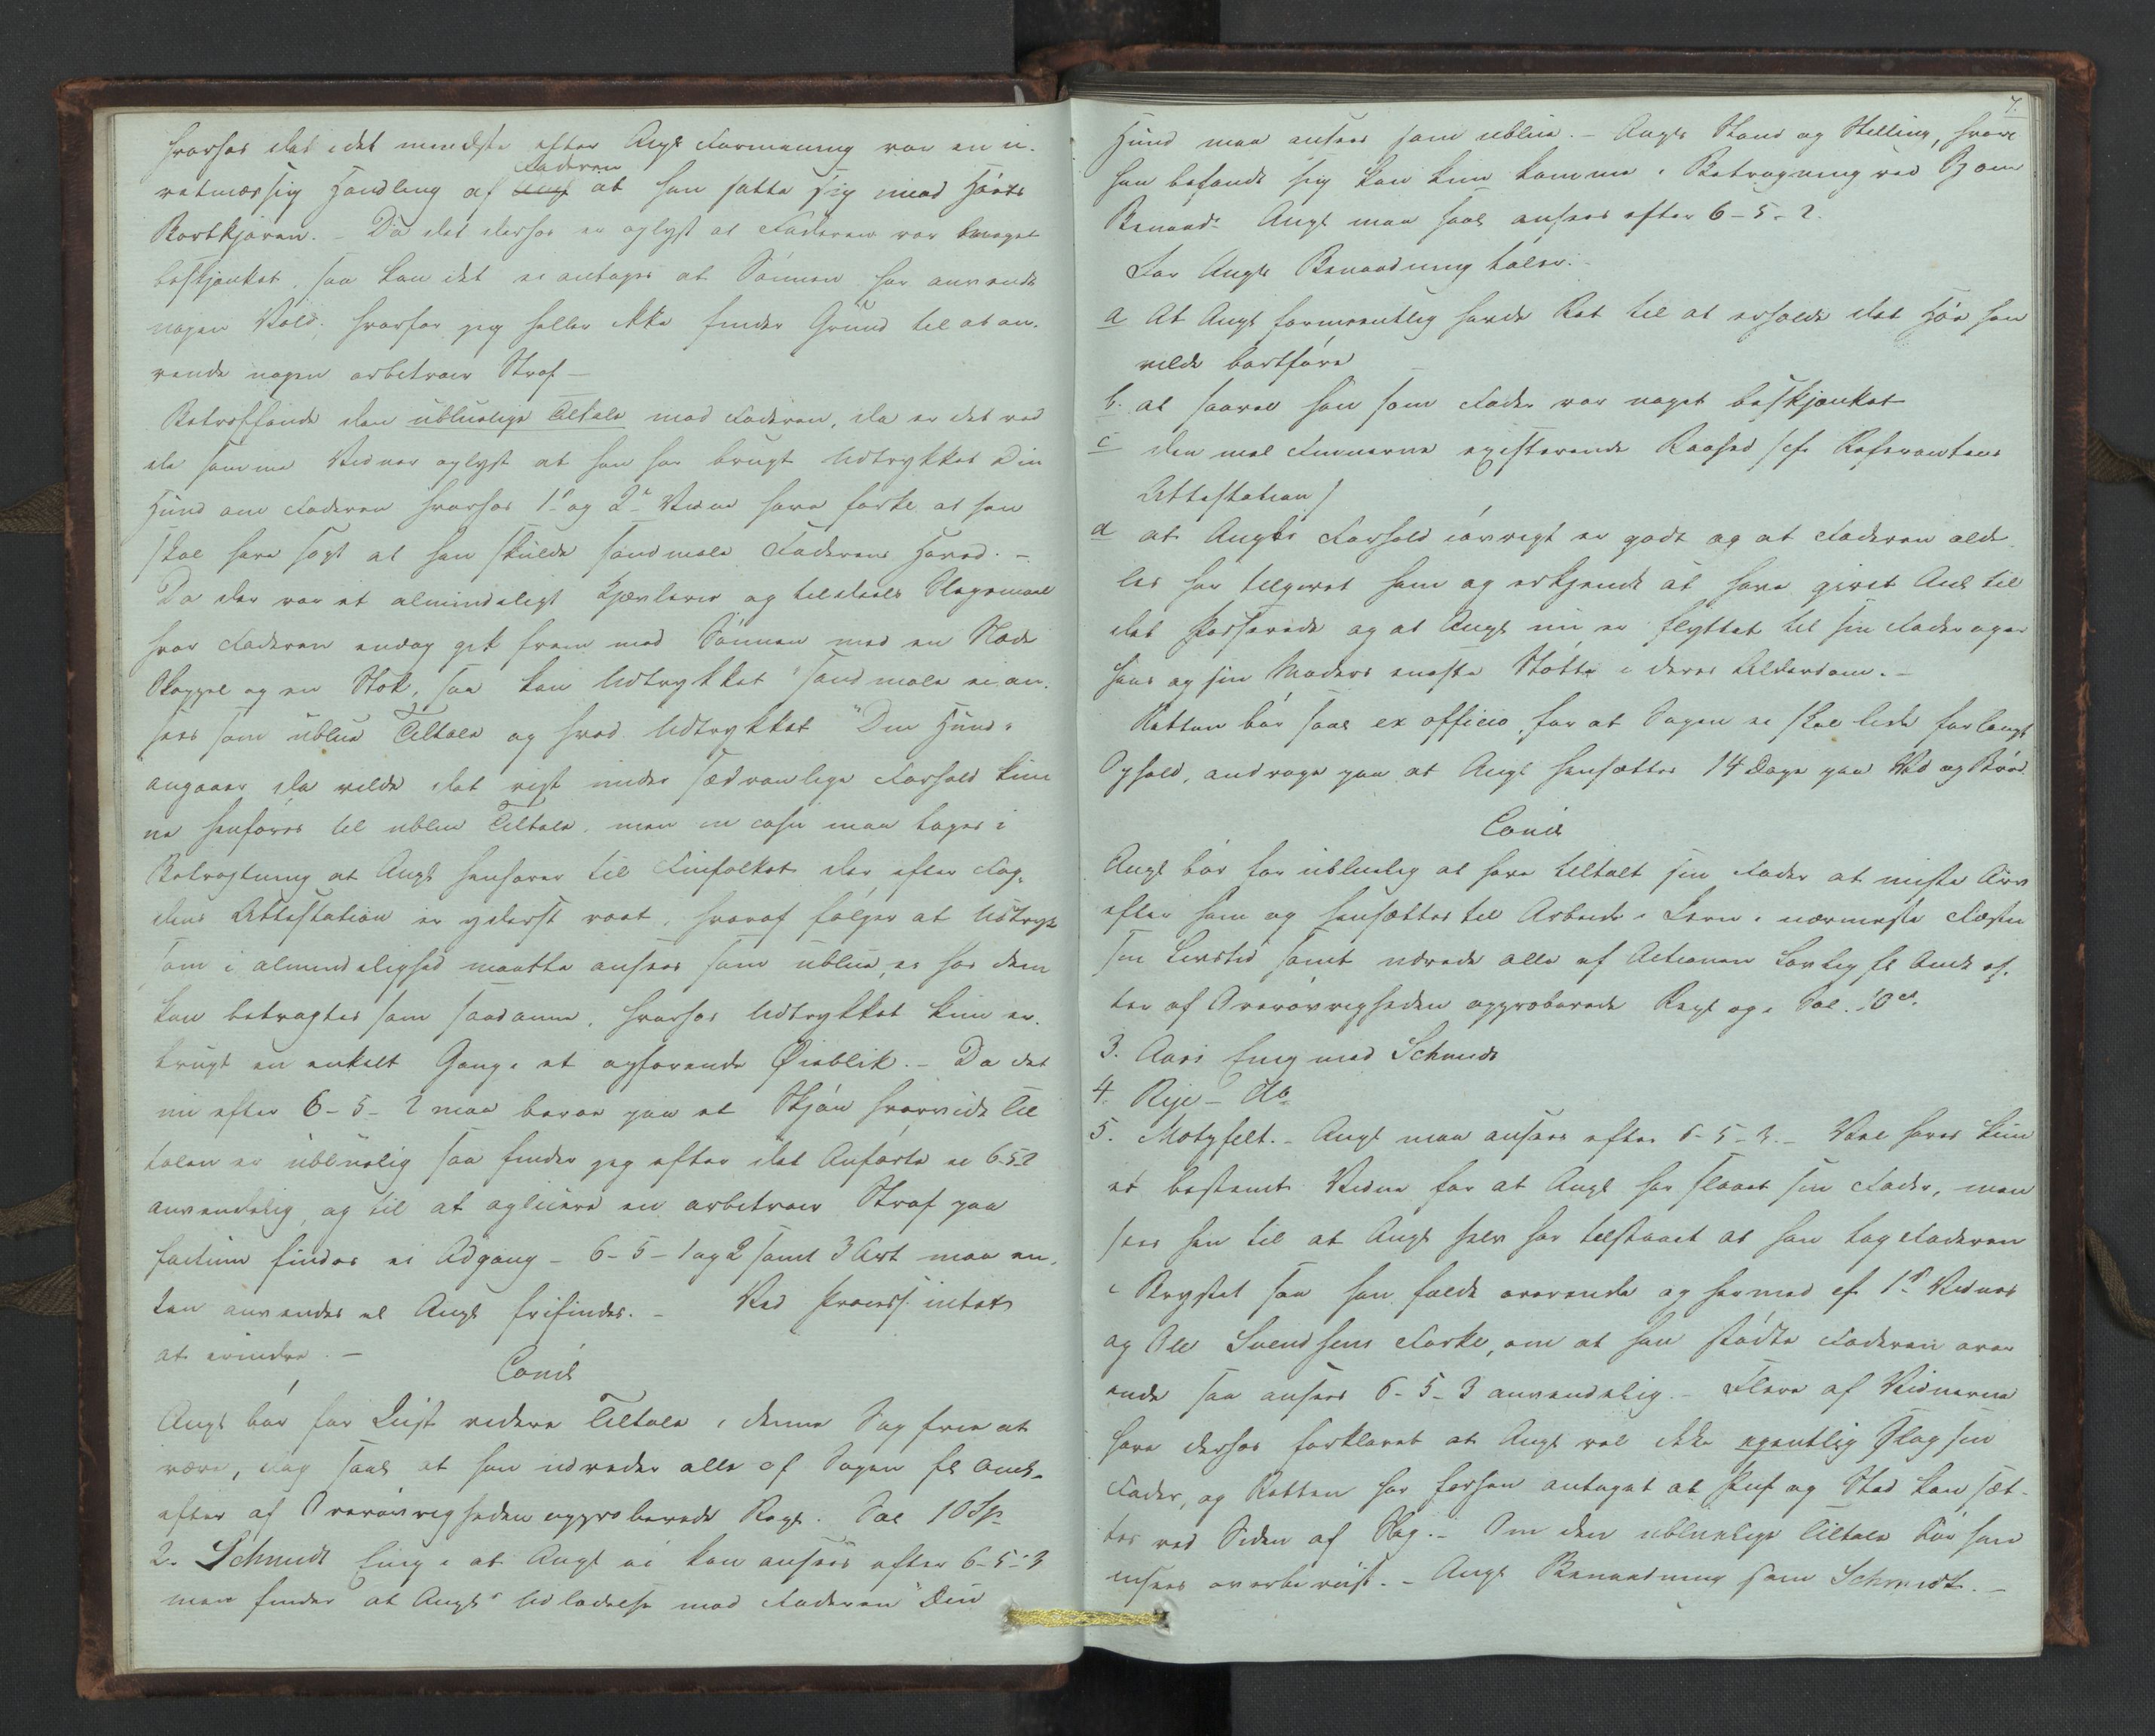 hvorhos det i det mindste efter Angl Formening var en u-
retmæssig Handling af Faderen at han satte sig imod Høets
Bortkjøren. - Da det derhos er oplyst at Faderen var meget
beskjænket, saa kan det ei antages at Sønnen har anvendt
nogen Vold, hvorfor jeg heller ikke finder Grund til at an-
vende nogen arbitrair Straf -
Betreffende den ubluelige Tiltale mod Faderen, da er det ved
de samme Vidner oplyst at han har brugt Udtrykket Din
Hund om Faderen hvorhos 1ste og 2det Vidne have forkl at han
skal have sagt at han skulde sandmale Faderens Hoved. -
Da der var et almindeligt Kjævlerie og tildeels Slagsmaal
hvor Faderen endog gik frem mod Sønnen med en
og en Stok, saa kan Udtrykket sandmale ei an-
sees som ublue Tiltale og hvad Udtrykket "Din Hund"
angaaer da vilde det vist under sædvanlige Forhold kun-
ne henføres til ublue Tiltale, men in casu maa tages i
Betragtning at Angl henhører til Finfolket der efter Fog-
dens Attestation er yderst raat, hvoraf følger at Udtryk
som i almindelighed maatte ansees som ublue, ei hos dem
kan betragtes som saadanne, hvorhos Udtrykket kun er
brugt en enkelt Gang i et opfarende Øieblik. - Da det
nu efter 6-5-2 maa beroe paa et Skjøn hvorvidt Til
talen er ubluelig saa finder jeg efter det Anførte ei 6-5-2
anvendelig, og til at aplicere en arbitrair Straf paa
factum findes ei Adgang - 6-5-1 og 2 samt 3 Art maa en-
ten anvendes el Angl frifindes. - Ved Process. intet
at erindre. -
Concl
Angl bør for Just videre Tiltale i denne Sag frie at
være, dog saal at han udreder alle af Sagen fl Omk.
efter af Overøvrigheden approberede Regl. Sal 10 Sp
2. Schmidt Enig i at Angl ei kan ansees efter 6-5-3
men finder at Angls Udladelse mod Faderen "Din
7.
Hund maa ansees som ublue. - Angls Stand og Stilling, hvori
han befandt sig kan kun komme i Betragtning ved Sp om
Benaadn. Angl maa saal ansees efter 6-5-2.
For Angls Benaadning taler:
a At Angl formeentlig havde Ret til at erholde det Hø han
vilde bortføre
b. at saavel han som Fader var noget beskjænket
c den mel Finnerne existerende Raahed /cfr Referentens
Attestation/
d at Angls Forhold iøvrigt er godt og at Faderen alde-
les har tilgivet ham og erkjendt at have givet Anl til
det Passerede og at Angl nu er flyttet til sin Fader og er
hans og sin Moders eneste Støtte i deres Alderdom. -
Retten bør saal ex officio, for at Sagen ei skal lide for langt
Ophold, andrage paa at Angl hensættes 14 Dage paa Vd og Brød
Concl
Angl bør for ubluelig at have tiltalt sin Fader at miste Arv
efter ham og hensættes til Arbeide i Jern i nærmeste Fæstn
sin Livstid samt udrede alle af Actionen lovlig fl Omk ef-
ter af Overøvrigheden approberede Regl og i Sal. 10 d.
3. Aars Enig med Schmidt
4. Rye - do
5. Motzfelt. - Angl maa ansees efter 6-5-3. - Vel haves kun
et bestemt Vidne for at Angl har slaaet sin Fader, men
sees hen til at Angl selv har tilstaaet at han tog Faderen
i Brystet saa han faldt overende og hermed cfr 1ste Vidnes
og Ole Svendsens Forkl, om at han stødte Faderen over
ende saa ansees 6-5-3 anvendelig. - Flere af Vidnerne
have derhos forklaret at Angl vel ikke egentlig slog sin
Fader, og Retten har forhen antaget at Puf og Stød kan sæt-
tes ved Siden af Slag. - Om den ubluelige Tiltale tør han
ansees overbeviist. - Angl Benaadning som Schmidt. -